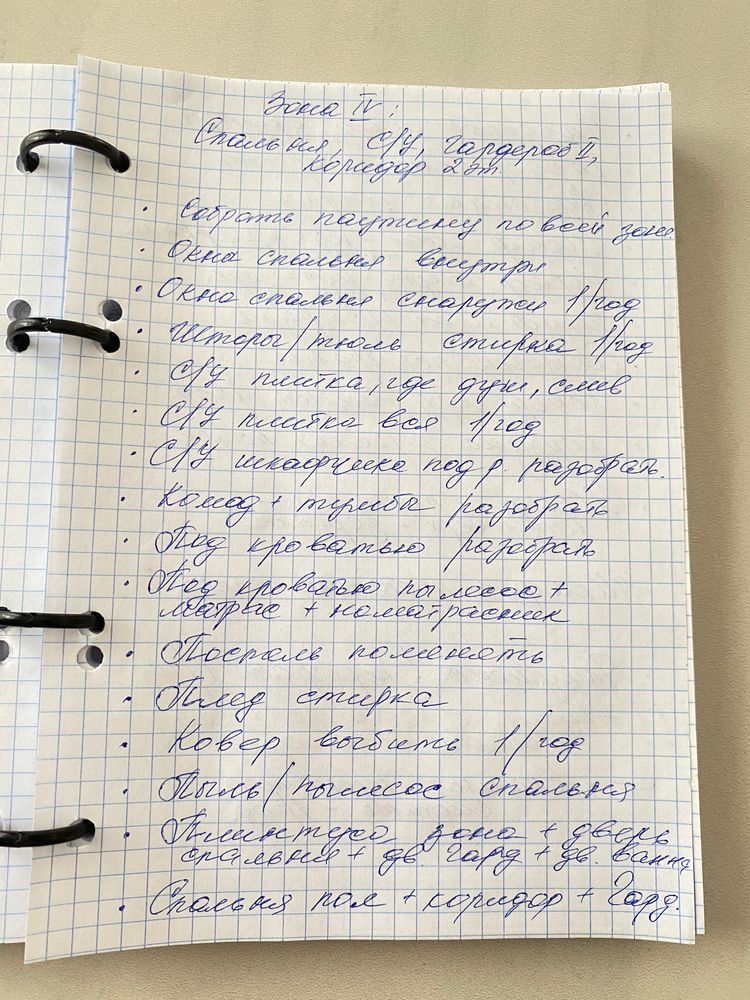 Зона IV:
Спальня, С/У, Гардероб II,
коридор 2 эт
· Собрать паутину по всей зоне.
· Окна спальня внутри
· Окна спальня снаружи 1/год
· Шторы/тюль стирка 1/год
· С/У плитка, где душ, слив
· С/У плитка вся 1/год
· С/У шкафчика под р. разобрать.
· Комод + тумбы разобрать
· Под кроватью разобрать
· Под кроватью пылесос +
матрас + номатрасник
· Постель поменять
· Плед стирка
· Ковер выбить 1/год
· Пыль/пылесос спальня
· Плинтуса зона + дверь
спальня + дв. Гард + дв. Ванна
· Спальня пол + коридор + Гард.